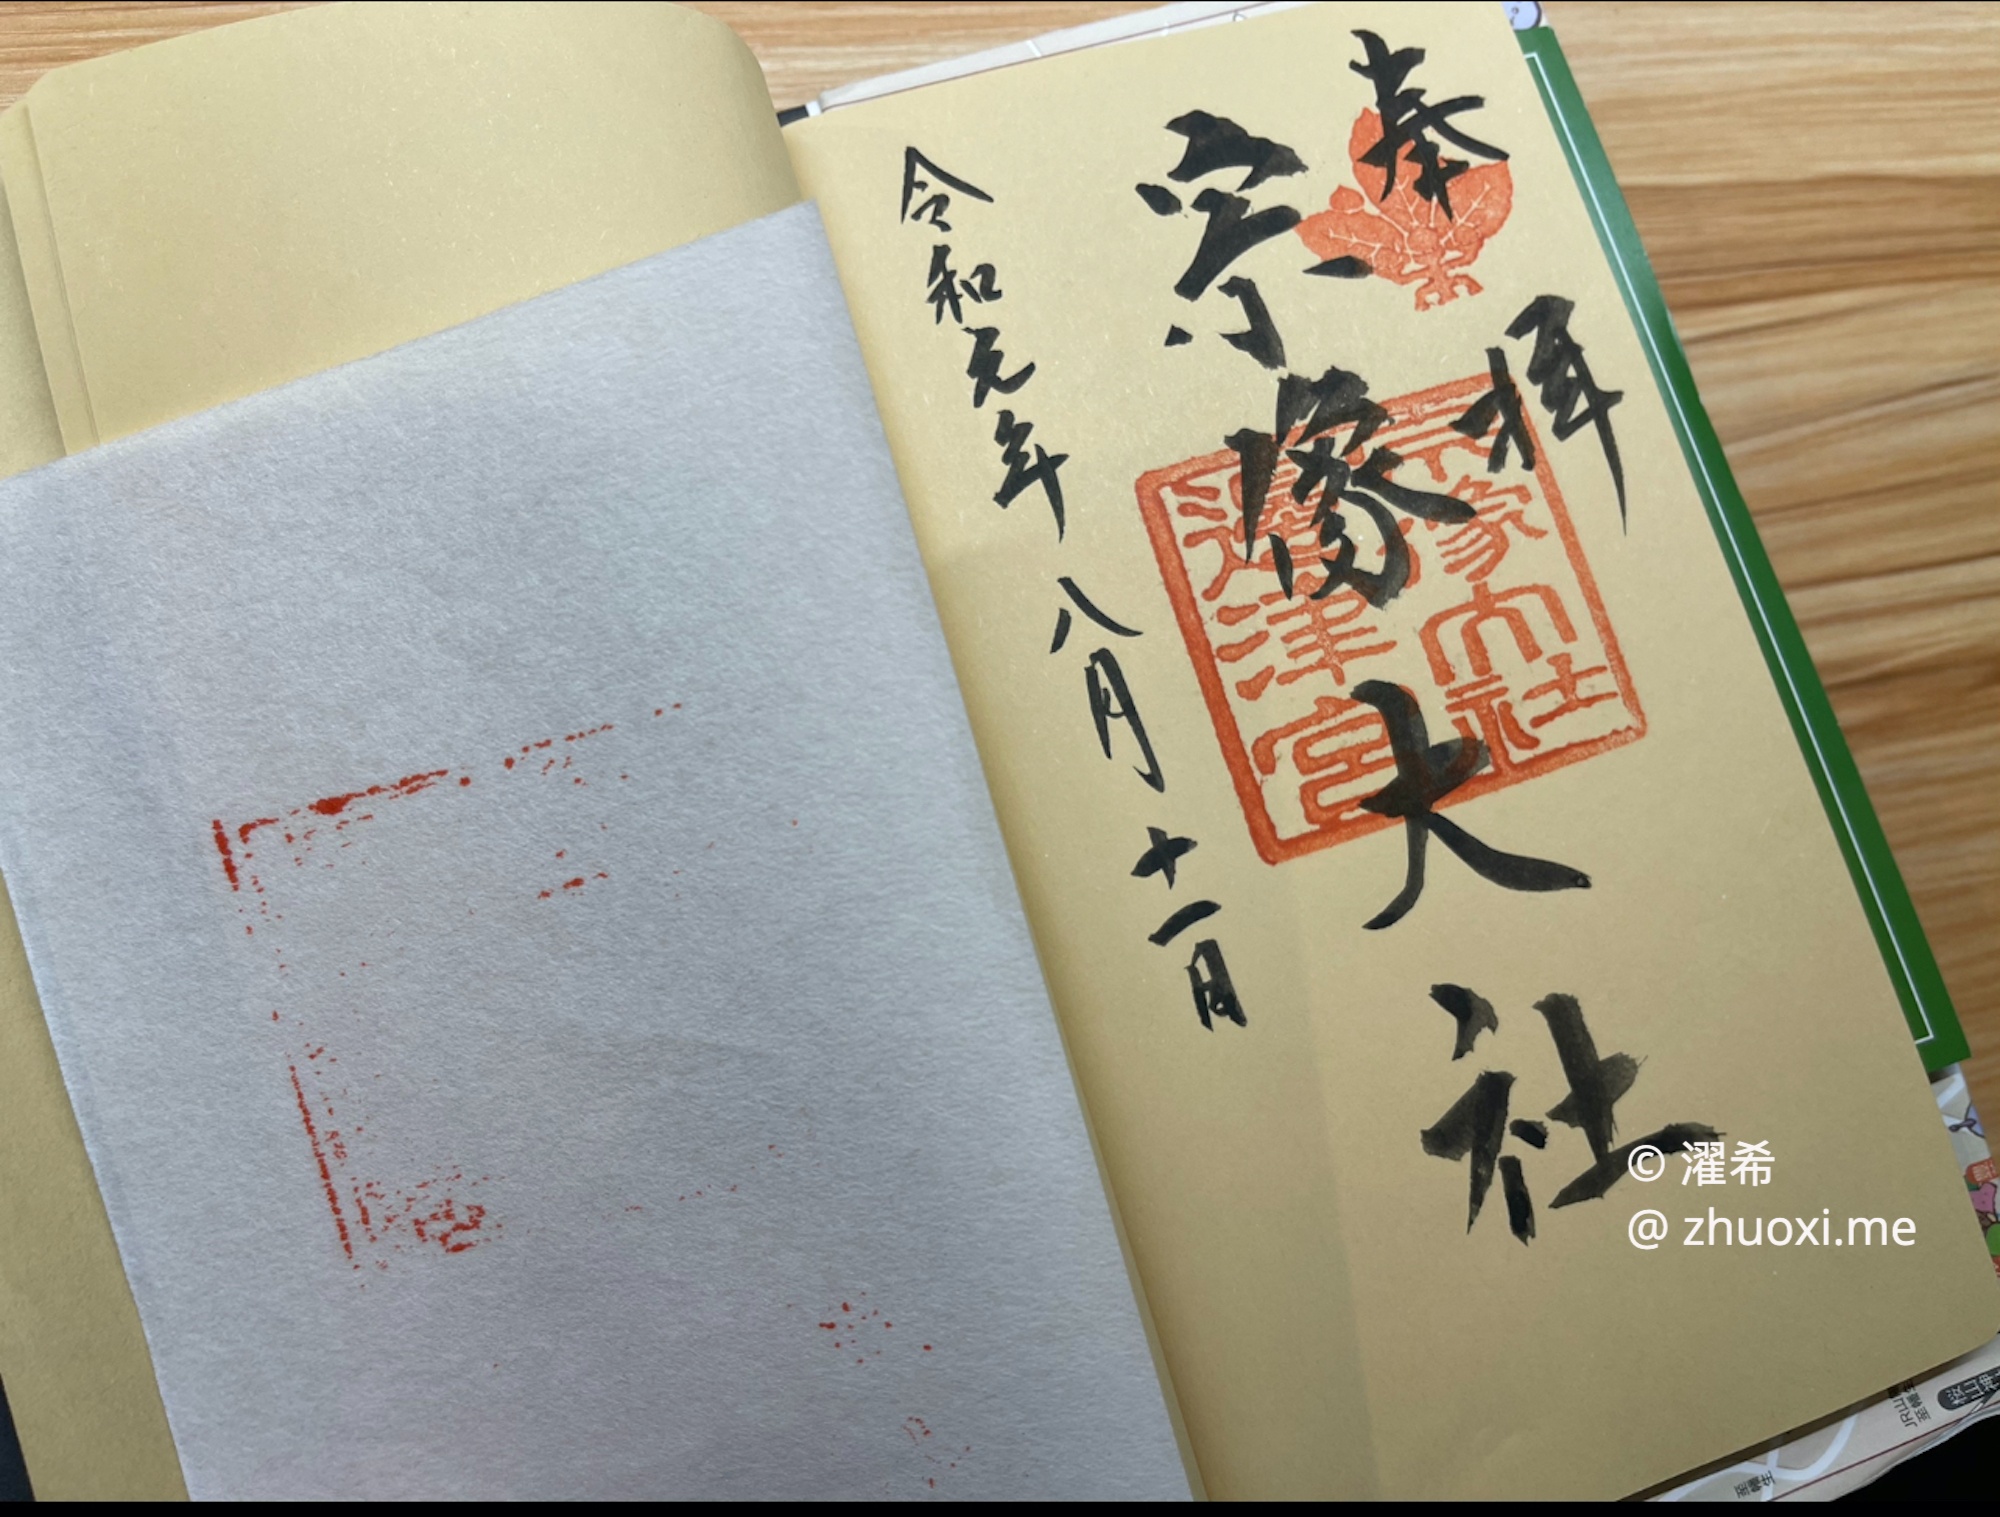 奉拝
宗像大社
令和元年八月十一日
宗像大社
邊津宮
© 濯希
@ zhuoxi.me